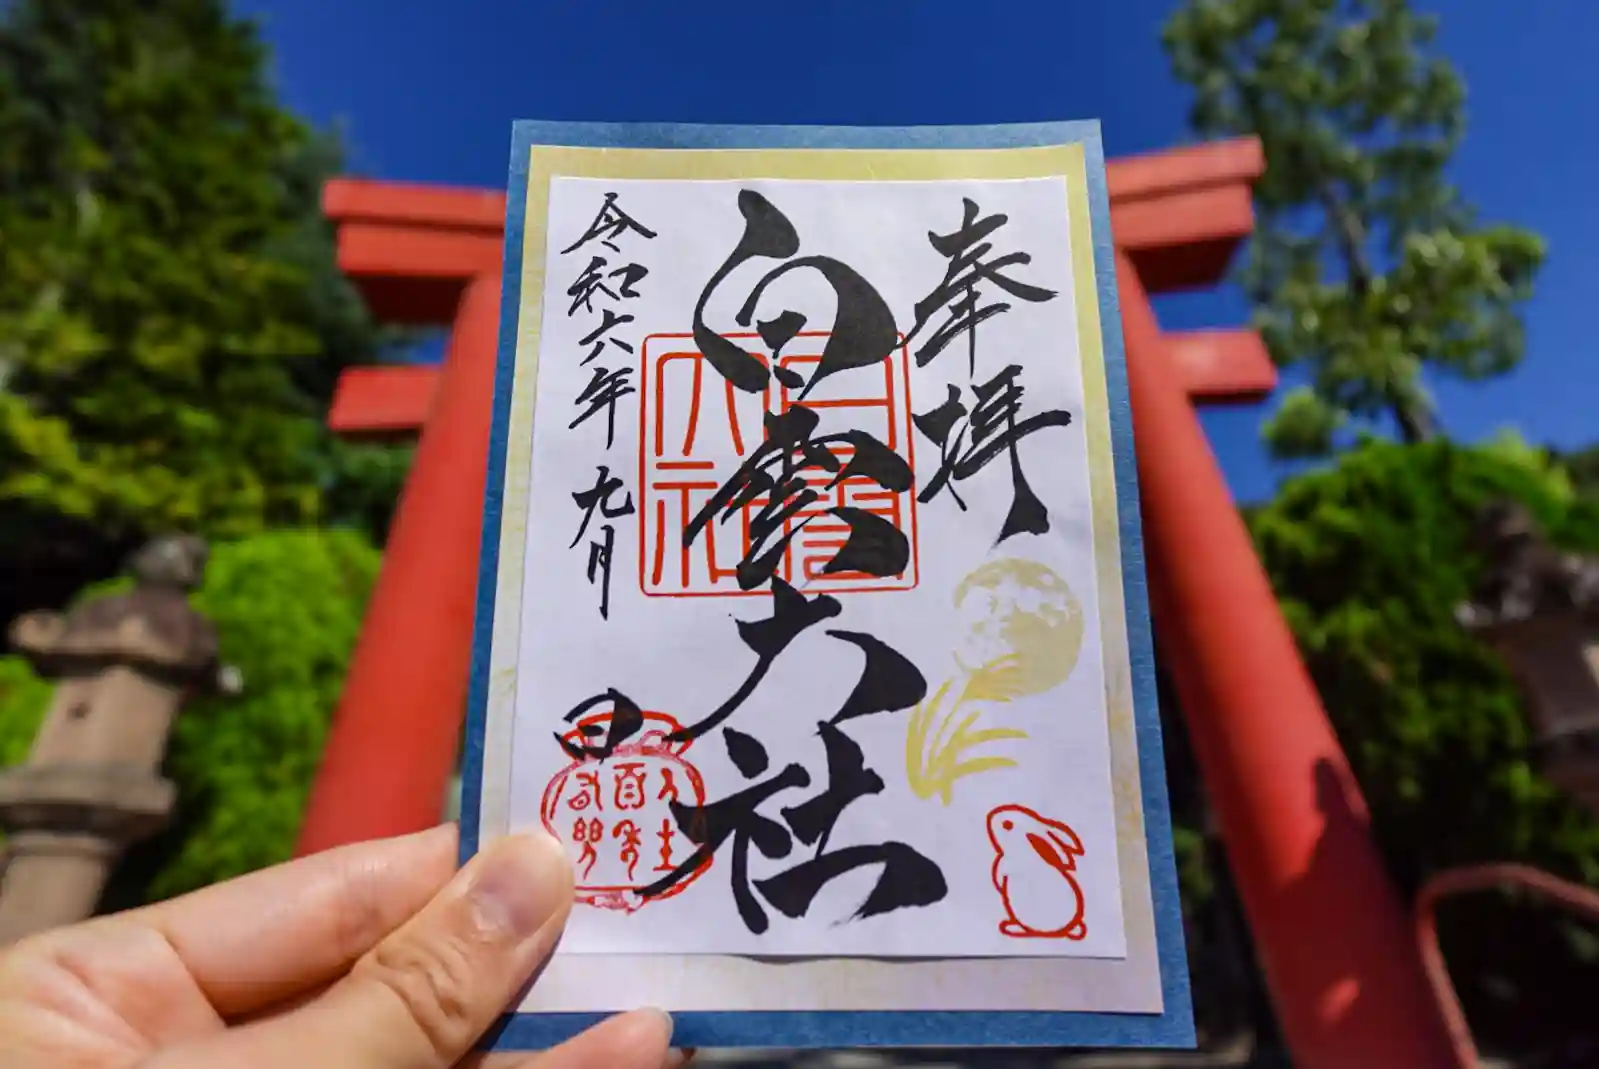 奉拝
白雲大社
白雲大社
令和六年九月
日